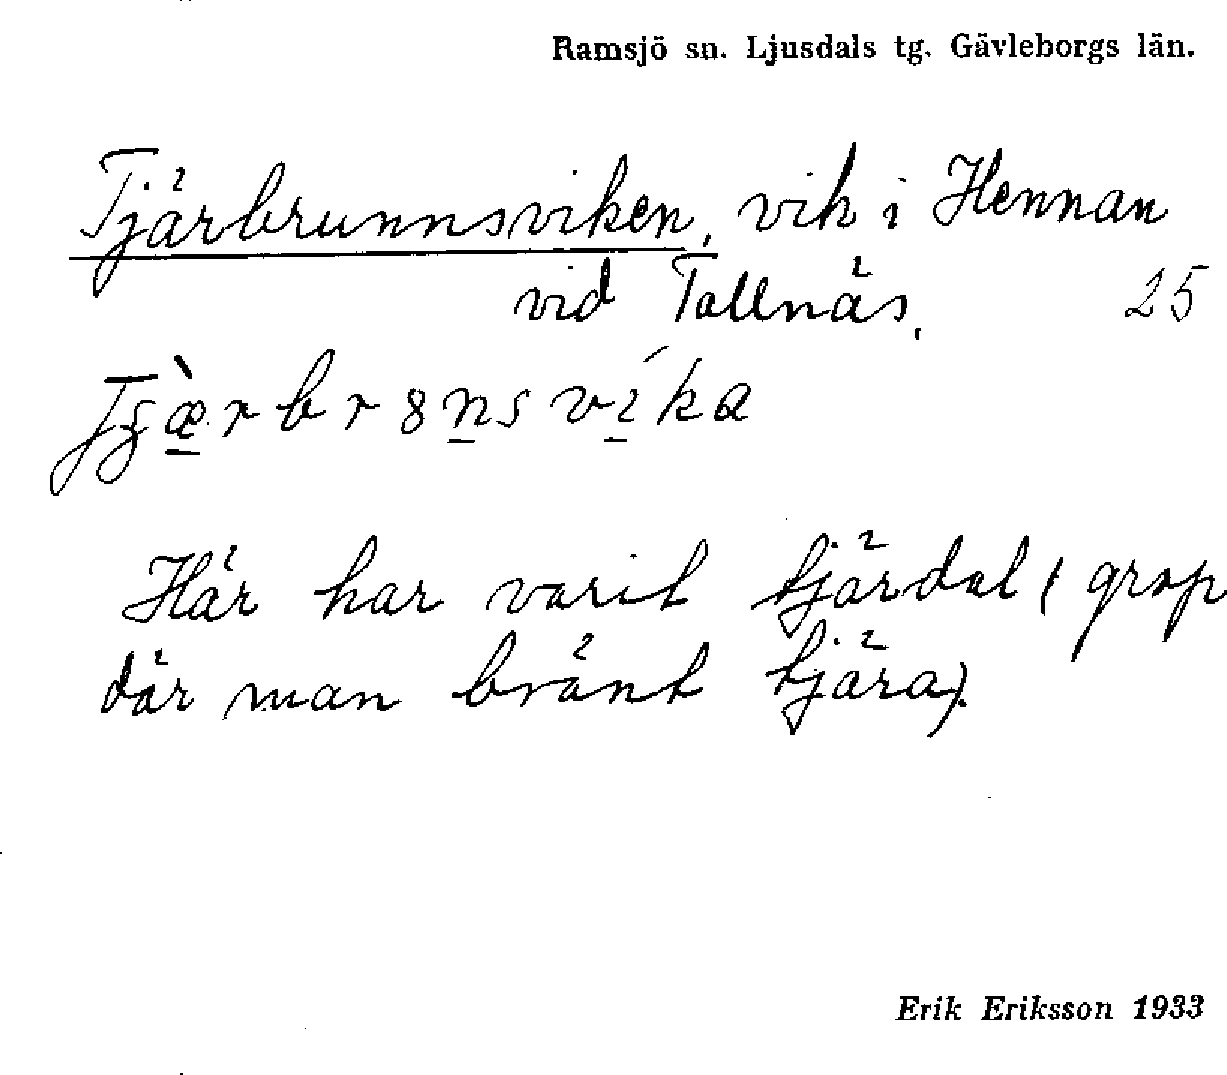 Ramsjö sn. Ljusdals tg. Gävleborgs län.
Tjärbrunnsviken, vik i Hennan
vid Tallnäs, 25
Här har varit tjärdal (grop
där man bränt tjära).
Erik Eriksson 1933